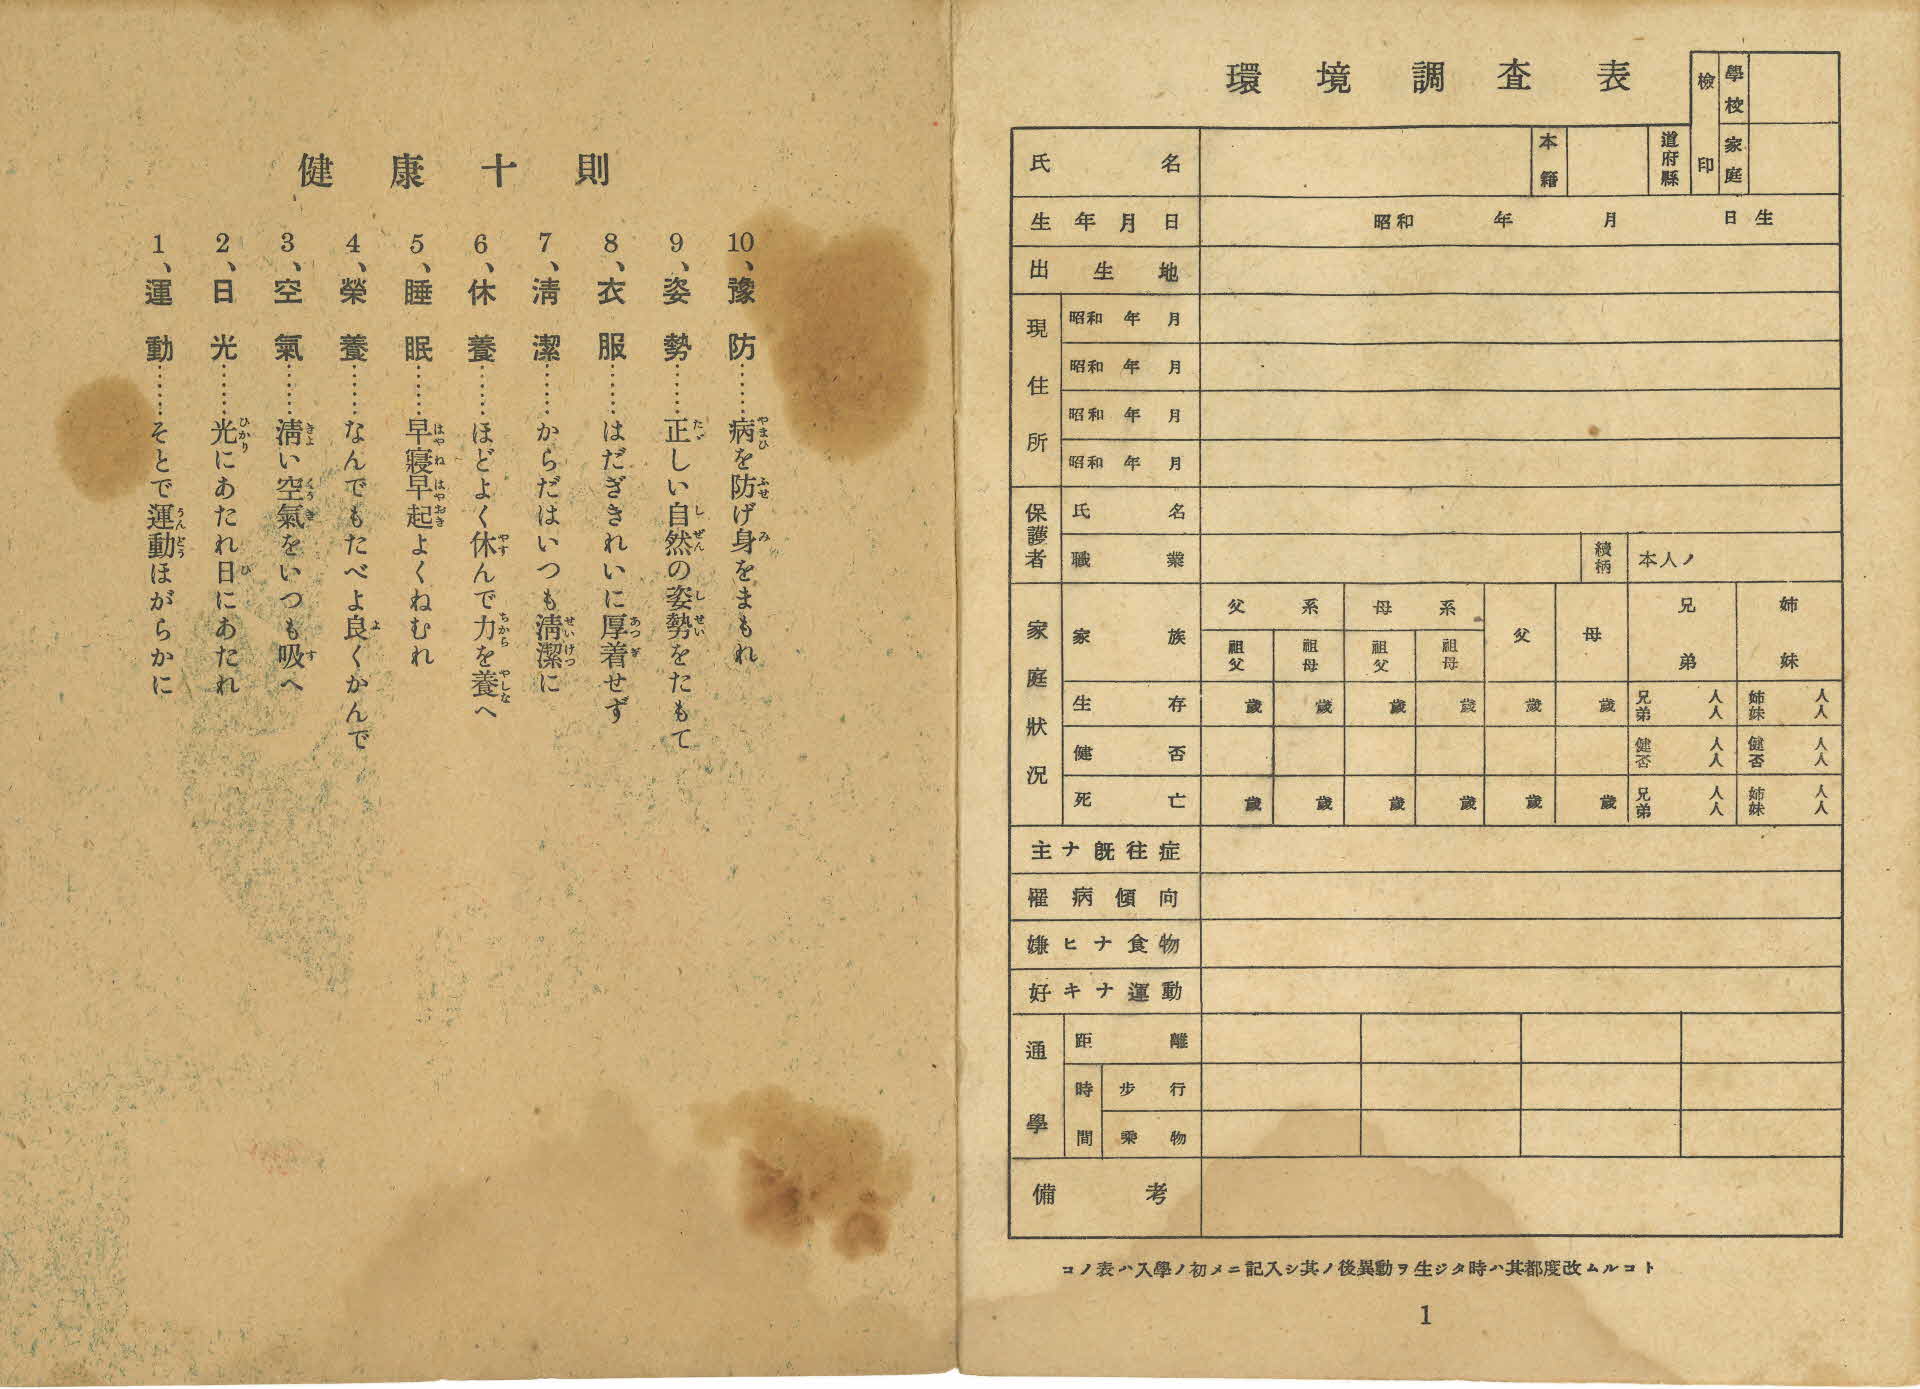 健康十則
1、運動……そとで運動ほがらかに
2、日光……光にあたれ日にあたれ
3、空氣……淸い空氣をいつも吸へ
4、榮養……なんでもたべよ良くかんで
5、睡眠……早寢早起よくねむれ
6、休養……ほどよく休んで力を養へ
7、淸潔……からだはいつも淸潔に
8、衣服……はだぎきれいに厚着せず
9、姿勢……正しい自然の姿勢をたもて
10、豫防……病を防げ身をまもれ
環境調査表
檢印
學校
家庭
氏名
本籍
道府縣
生年月日
昭和 年 月 日生
出生地
現住所
昭和 年 月
昭和 年 月
昭和 年 月
昭和 年 月
保護者
氏名
職業
續柄
本人ノ
家庭狀況
家族
父系
母系
祖父
祖母
祖父
祖母
父
母
兄弟
姉妹
生存
歲 歲 歲 歲 歲 歲 兄弟 人人 姉妹 人人
健否
健否 人人 健否 人人
死亡
歲 歲 歲 歲 歲 歲 兄弟 人人 姉妹 人人
主ナ旣往症
罹病傾向
嫌ヒナ食物
好キナ運動
通學
距離
時間
步行
乘物
備考
コノ表ハ入學ノ初メニ記入シ其ノ後異動ヲ生ジタ時ハ其都度改ムルコト
1